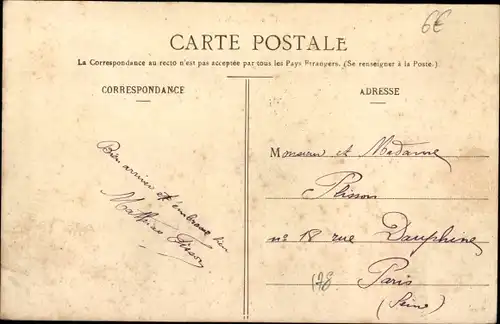 6€
CARTE POSTALE
La Correspondance au recto n'est pas acceptée par tous les Pays Etrangers. (Se renseigner à la Poste.)
CORRESPONDANCE
ADRESSE
Bien arrivée et
Mathilde
Monsieur et Madame
Plisson
n° 18 rue Dauphine
Paris
(Seine)
178